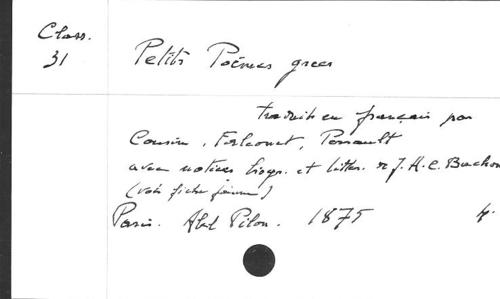 Class.
31
Petits Poèmes grecs
traduits en français par
Cousin, Falconet, Perrault
avec notices biogr. et litter. de J. H. C. Buchon
(voir fiche jaune)
Paris. Abel Pilon. 1875
4°